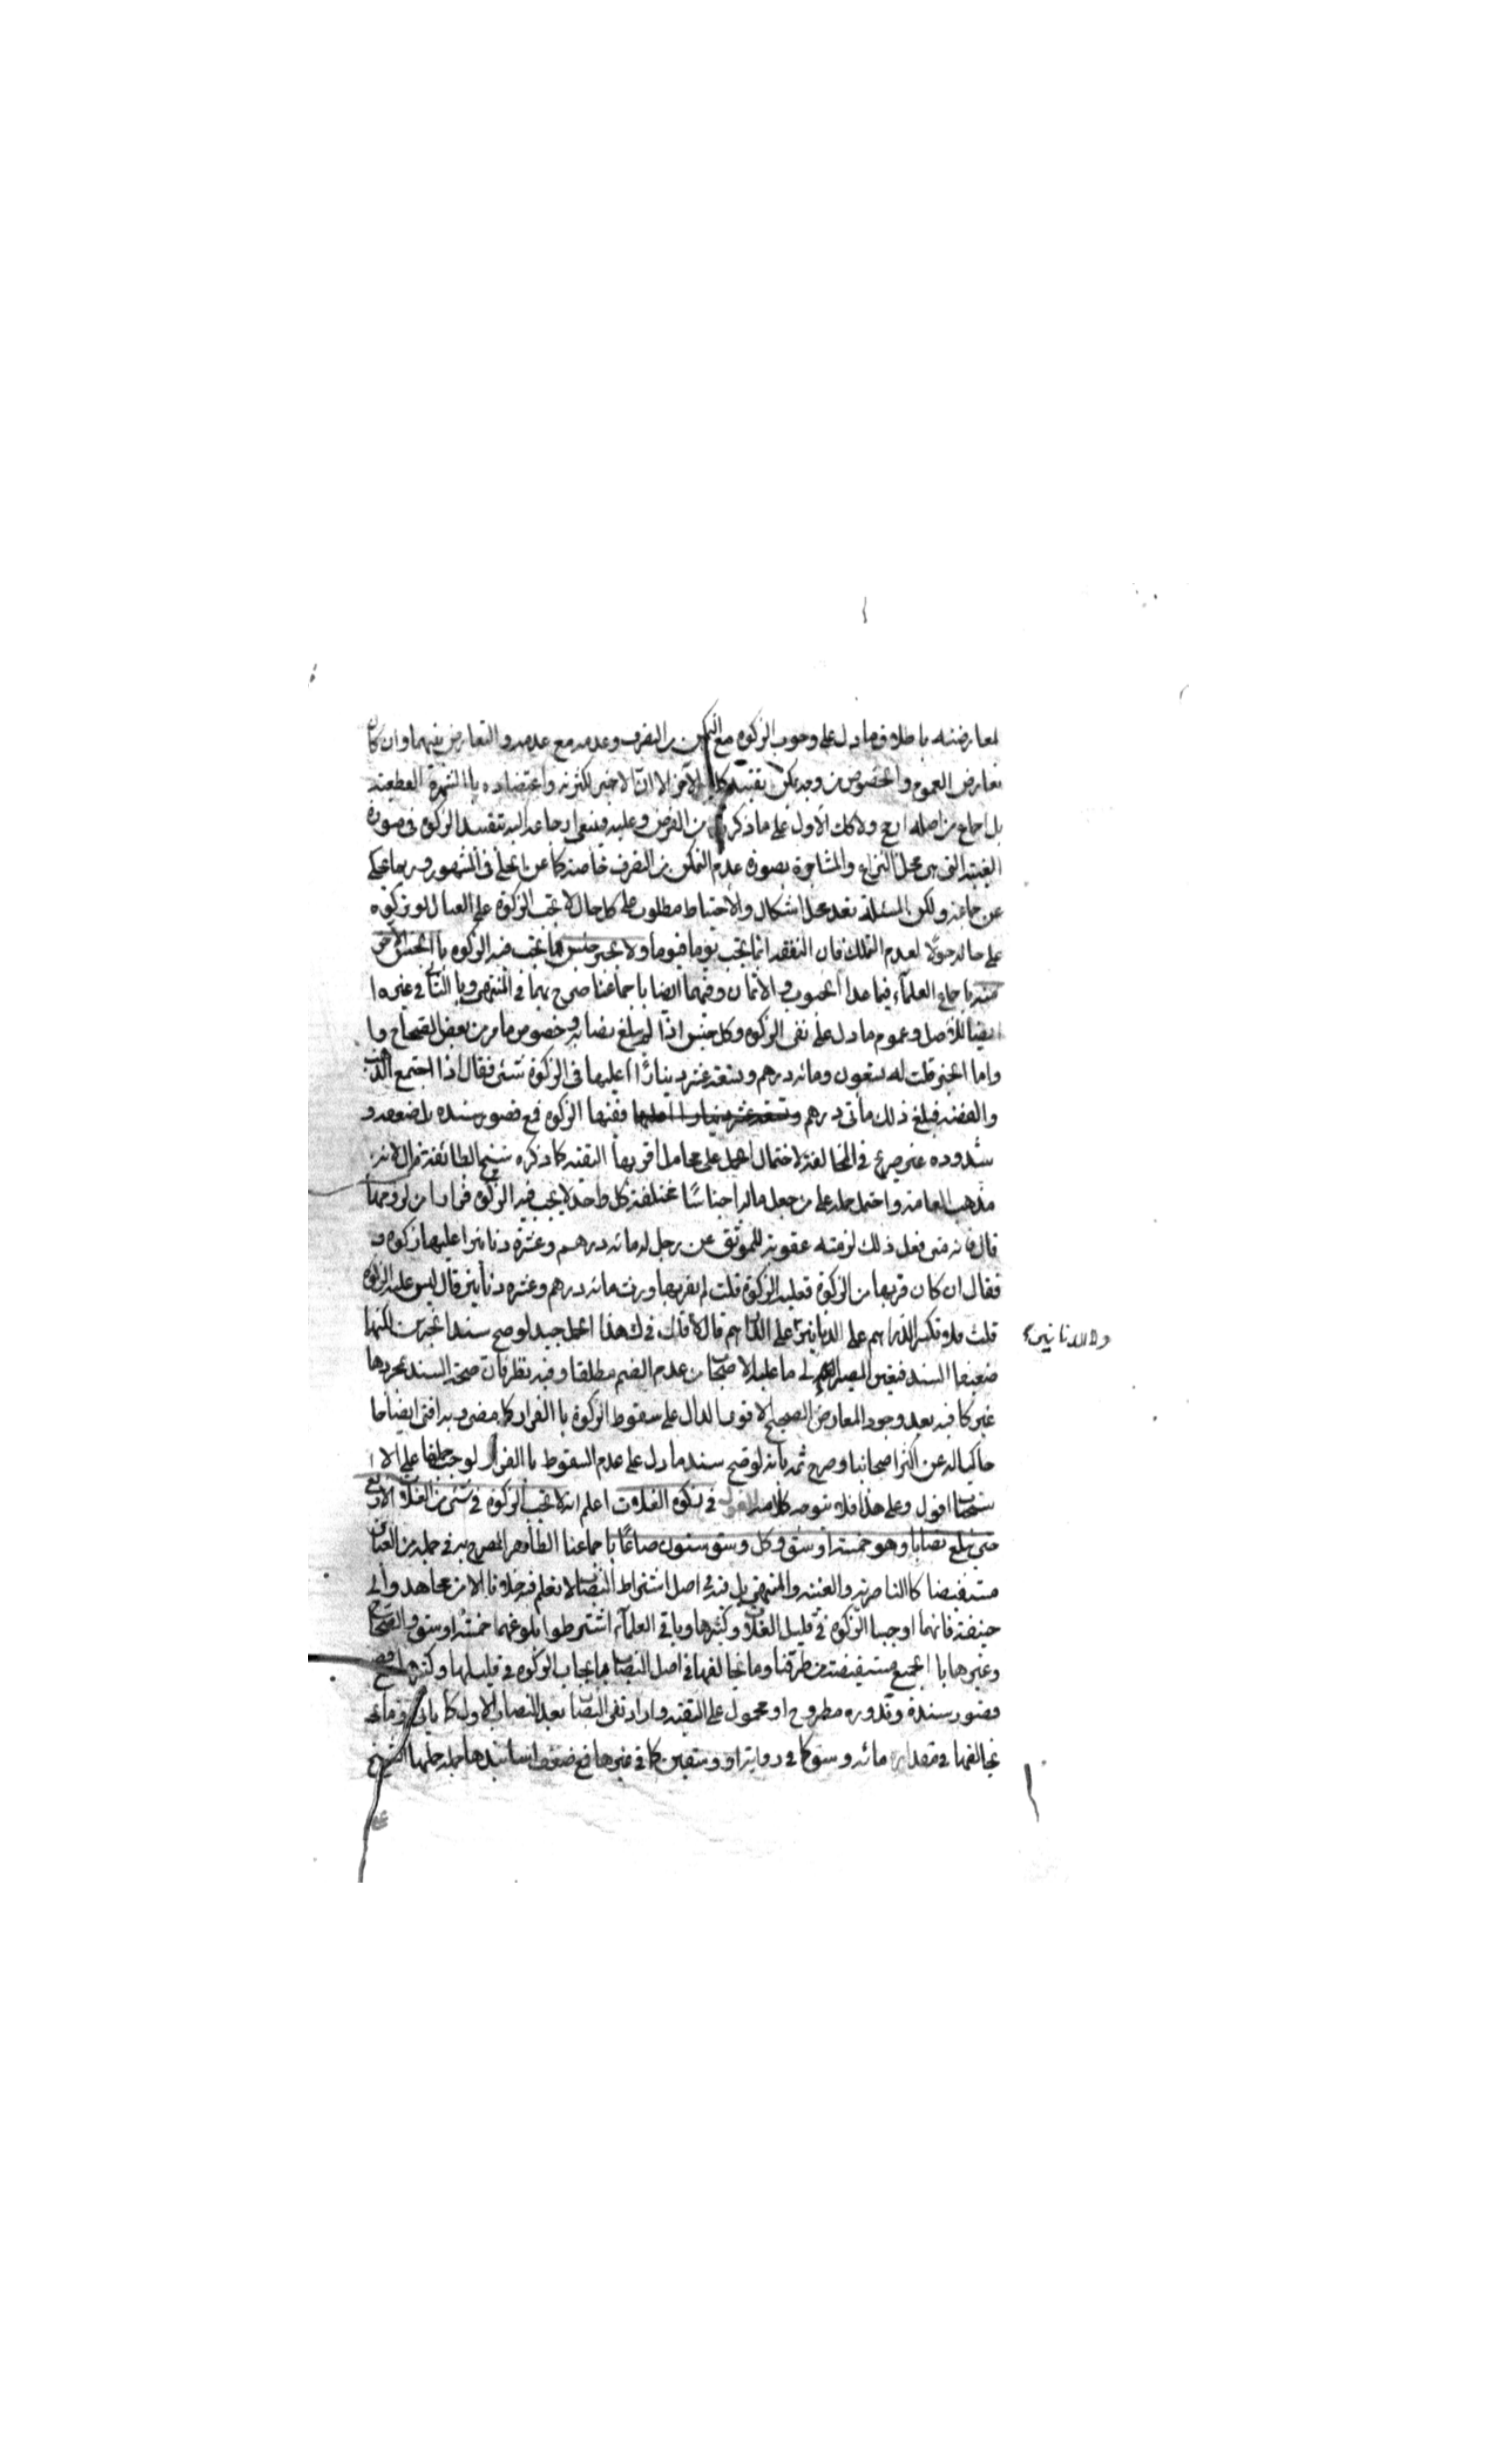 لمعارضته باطلاق ما دل على وجوب الزكوة مع التمكن من التصرف وعدمه مع عدمه والتعارض بينهما وان كان
تعارض العموم والخصوص من وجه يمكن تقييد كل بالآخر الا ان الاخير لكثرته واعتضاده باالشهرة العظيمة
بل اجماع من اصله ارجح ولا كك الأول على ما ذكر من الفرض وعليه فينبغي ارجاعه اليه بتقييد الزكوة في صورة
الغيبة التي هي محل النزاع والمشاجرة بصورة عدم التمكن من التصرف خاصة كما عن الحلي في المشهور وربما يحكى
عن جماعة ولكن المسئلة بعد محل اشكال والأحتياط مطلوب على كل حال لا تجب الزكوة على العيال لو تركوه
على حاله حولًا لعدم التملك فان النفقة انما تجب يوما فيوما ولا يجبر جنس مما تجب فيه الزكوة باالجنس الآخر
منه باجماع العلمآء فيما عدا الحبوب والاثمان وفيهما ايضا باجماعنا صرح بهما في المنتهى وباالثاني غيره ا
ايضا للأصل وعموم ما دل على نفي الزكوة وكل جنس اذا لم يبلغ نصابه وخصوص ما مر من بعض الصحاح وا
واما الخبر قلت له تسعون ومائة درهم وتسعة عشر دينارًا اعليها في الزكوة شئ فقال اذا اجتمع الذهب
والفضة فبلغ ذلك مأتي درهم ففيها الزكوة فمع قصور سنده بل ضعفه و
شذوذه غير صريح في المخالفة لاحتمال الحمل على محامل اقربها التقية كما ذكره شيخ الطائفة قال لانه
مذهب العامة واحتمل حمله على من جعل ماله اجناسًا مختلفة كل واحد لا يجب فيه الزكوة فرارا من لزومها
قال فانه متى فعل ذلك لزمته عقوبة للموثق عن رجل له مائة درهم وعشرة دنانير اعليها زكوة
فقال ان كان فر بها من الزكوة فعليه الزكوة قلت لم يفر بها ورث مائة درهم وعشرة دنانير قال ليس عليه الزكوة
قلت فلا تكسر الدراهم على الدنانير ولا الدنانير على الدراهم قال لا
ضعيفا السند فيتعين المصير الى ما عليه الاصحاب من عدم الضم مطلقا وفيه نظر فان صحة السند بمجردها
غير كافية بعد وجود المعارض الصحيح الاقوى الدال على سقوط الزكوة باالفرار كما مضى وبه افتى ايضا
حاكيا له عن اكثر اصحابنا وصرح ثمه بانه لو صح سند ما دل على عدم السقوط باالفرار لوجب حملها على الا
ستحباب اقول وعلى هذا فلا يتوجه كلامه القول في زكوة الغلات اعلم انه لا تجب الزكوة في شئ من الغلات الاربع
حتى تبلغ نصابا وهو خمسة اوسق وكل وسق ستون صاعًا باجماعنا الظاهر المصرح به في جملة من العبائر
مستفيضا كاالناصرية والغنية والمنتهى بل فيه في اصل اشتراط النصاب لا نعلم فيه خلافا الا من مجاهد وابي
حنيفة فانهما اوجبا الزكوة في قليل الغلات وكثيرها وباقي العلمآء اشترطوا بلوغهما خمسة اوسق والصحاح
وغيرها باالجميع مستفيضة من طرقنا وما يخالفها في اصل النصاب بايجاب الزكوة في قليلها وكثيرها فمع
قصور سنده وندوره مطروح او محمول على التقية واراد نفي النصاب بعد النصاب الاول كما ياتي وما
يخالفها في مقداره مائة وسق كما في رواية او وسقين كما في غيرها فمع ضعف اسانيدها جملة حملها الشيخ
ولا الدنانير